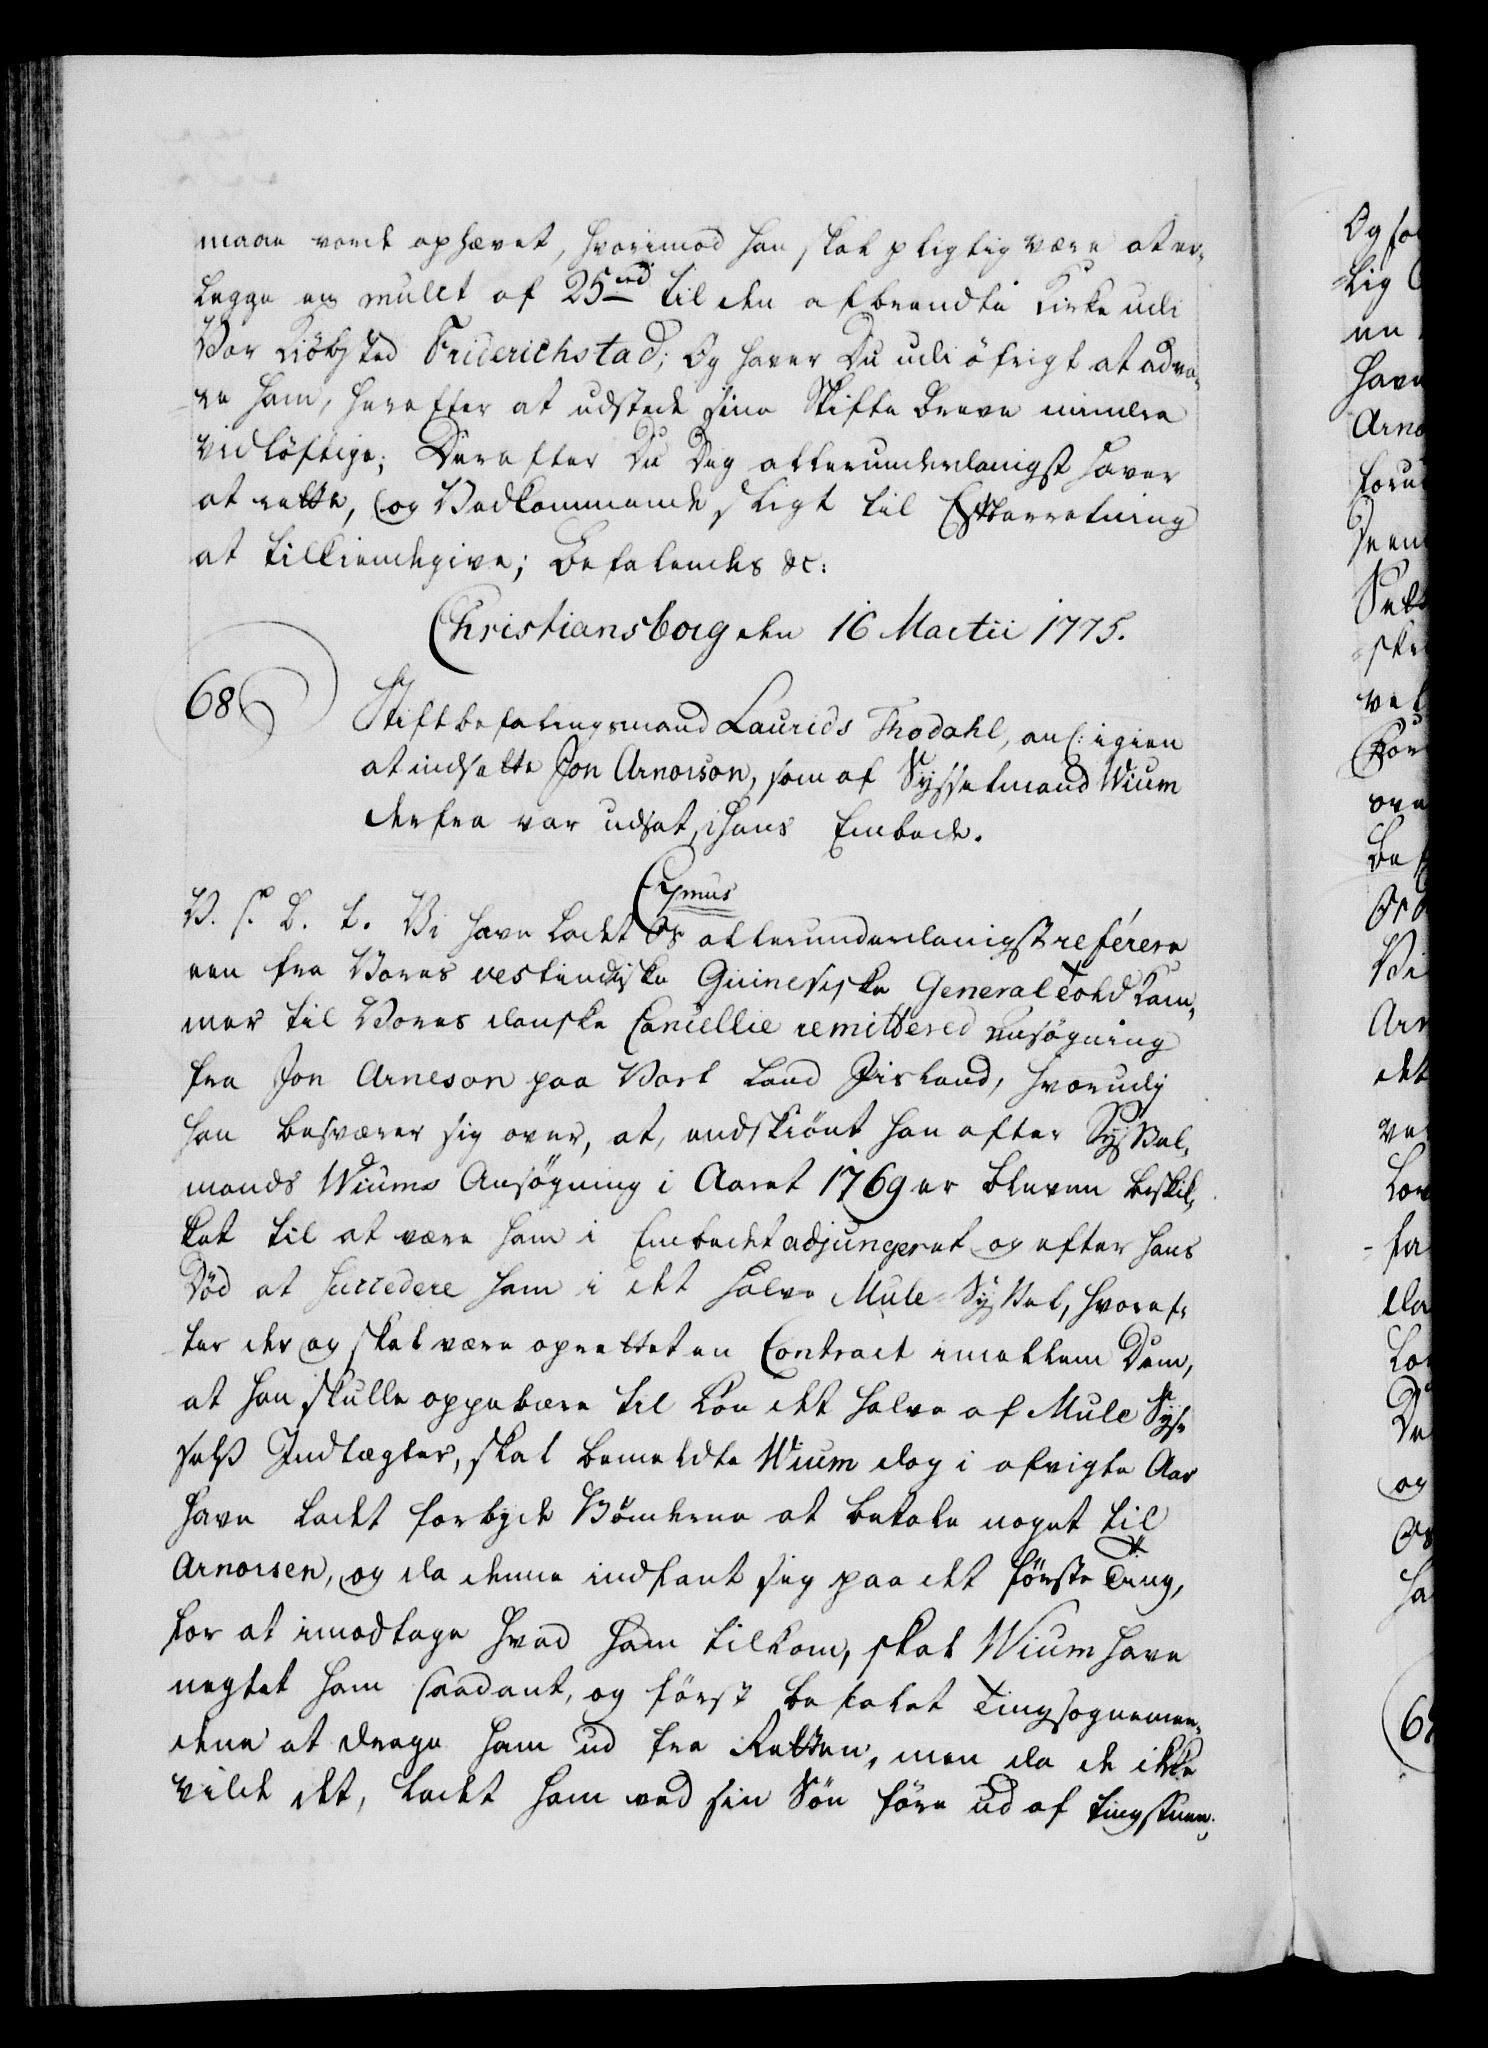 maae vorde ophævet, hvorimod han skal pligtig være at er-
legge en mulct af 25 rd til den afbrændte Kirke udi
Vor Kiöbsted Friderichstad; Og haver Du udi öfrigt at adva-
re ham, herefter at udstede sine Skifte Breve mindre
vidlöftige; Derefter Du Dig allerunderdanigst haver
at rette, og Vedkommende sligt til Efterretning
at tilkiendegive; Befalendes &c:
Christiansborg den 16 Martii 1775.
68
Stiftbefalingsmand Laurids Thodahl, anl: igien
at indsette Jon Arnorson, som af Sysselmand Wium
derfra var udsat, i hans Embede.
C7mus
V. S. B. t. Vi have ladet Os allerunderdanigst referere
een fra Vores vestindiske Guineiske General Told Kam-
mer til Vores danske Cancellie remittered Ansögning
fra Jon Arneson paa Vort Land Iisland, hvorudj
han besværer sig over, at, endskiönt han efter Syssel-
mands Wiums Ansögning i Aaret 1769 er bleven beskik-
ket til at være ham i Embedet adjungeret og efter hans
Död at succedere ham i det halve Mule-Syssel, hvoref-
ter der og skal være oprettet en Contract imellem Dem,
at han skulle oppebære til Lön det halve af Mule Sys-
sels Indtægter, skal bemeldte Wium dog i afvigte Aar
have ladet forbyde Bönderne at betale noget til
Arnorsen, og da denne indfant sig paa det förste Ting,
for at imodtage hvad ham tilkom, skal Wium have
negtet ham saadant, og först befalet Tingsognemæn-
dene at drage ham ud fra Retten, men da de ikke
vilde det, ladet ham ved sin Sön före ud af Tingstuen.